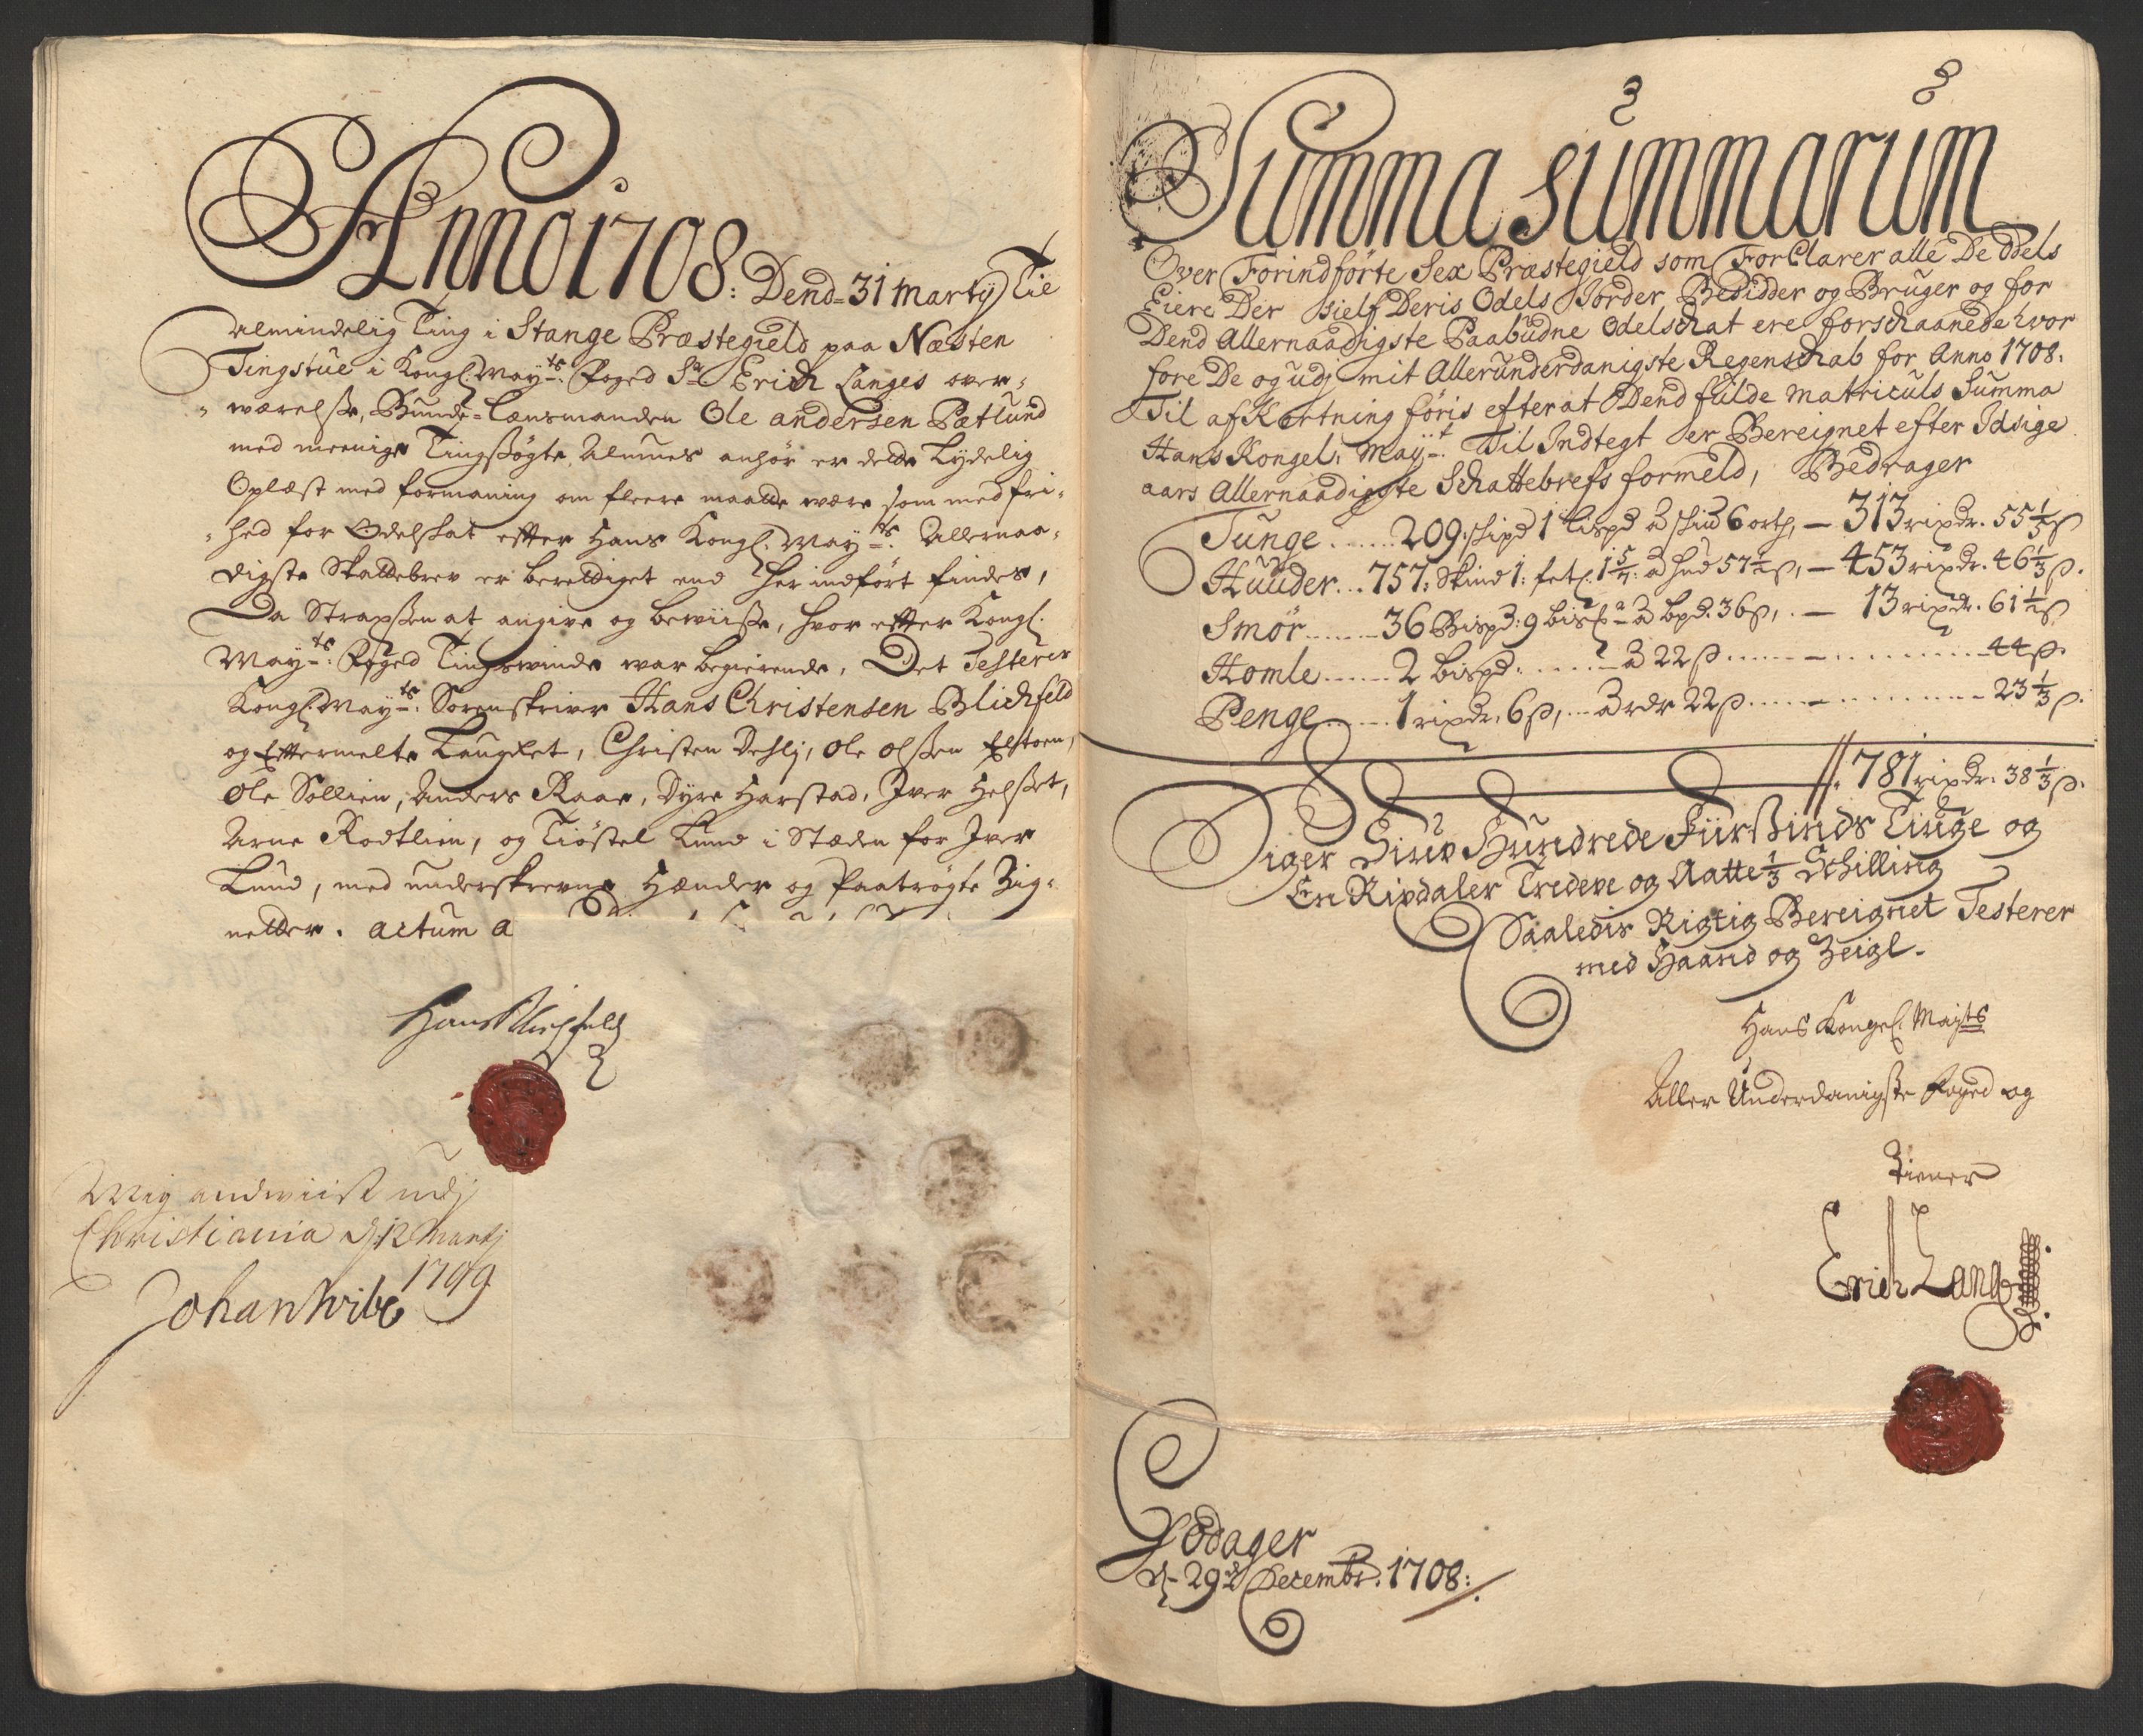 Anno 1708: Dend 31 Martÿ Til
almindelig Ting i Stange Præstegield paa Næsten
Tingstue i Kongl. Mayts. Foged Sr. Erich Langes over-
værelsse, Bunde-Lænsmanden Ole andersen Pætlund
med meenige Tingsøgte Almues anhør er dette Lydelig
Oplæst med formaning om fleere maatte være som med fri-
hed for Odelskat efter Hans Kongl. Mayts. Allernaa-
digste Skattebrev er berettiget end her indført findes,
Da Strax at angive og beviisse, hvor efter Kongl.
Mayts. Foged Tingsvinde var begierende, Det Testerer
Kongl. Mayts. Sorenskriver Hans Christensen Blichfeld
og Eftermelte Laugret, Christen Dehlj, Ole Olssen
Ole Sollien, Anders Raae, Dyre Harstad, Iver Helset,
Arne Rodtlien, og Tiøstel Lund i Stæden for Iver
Lund, med underskrevne Hænder og Paatrøgte Zig-
netter. Actum a
Hans Blichfeld
Mig andviist udj
Christiania d 12 Martj
1709
Johan Wibe
Summa Summarum
Over Forindførte Sex Præstegield som ForClarer alle De Odels
Eiere Der sielf Deris Odels Jorder Besidder og Bruger og for
Dend Allernaadigste Paabudne Odelschat ere forschaanede hvor
fore De og udj mit Allerunderdanigste Regenschab for Anno 1708.
Til afKortning føris efter at Dend fulde Matriculs Summa
Hans Kongel: Mayt. Til Indtegt er Bereignet efter Idsige
aars Allernaadigste Schattebrefs formeld, Bedrager
Tunge 209: skipd 1 Lispd à skiu 6 ort, — 313 rixdr. 55 1/3 s
Huuder 757: Skind 1: 1 5/7: à hud 57 1/2 s, — 453 rixdr. 46 1/3 s.
Smør 36 Bispd: 9 à bpd. 36 s, — 13 rixdr. 61 1/2 s
Homle 2 bispd. à 22 s — 44 s.
Penge 1 rixdr. 6 s, à rdr 22 s — 23 1/3 s.
781 rixdr. 38 1/3 s.
Siger Siuv Hundrede Fiirsinds Tiuge og
En Rixdaler Tredeve og Aatte 1/3 Schilling
Saaledis Rigtig Bereignet Testerer
med Haand og Zeigl.
Hans Kongel. Mayts
Aller Underdanigste Foged og
Tiener
Erich Lange
Godager
d 29 Decembr. 1708: